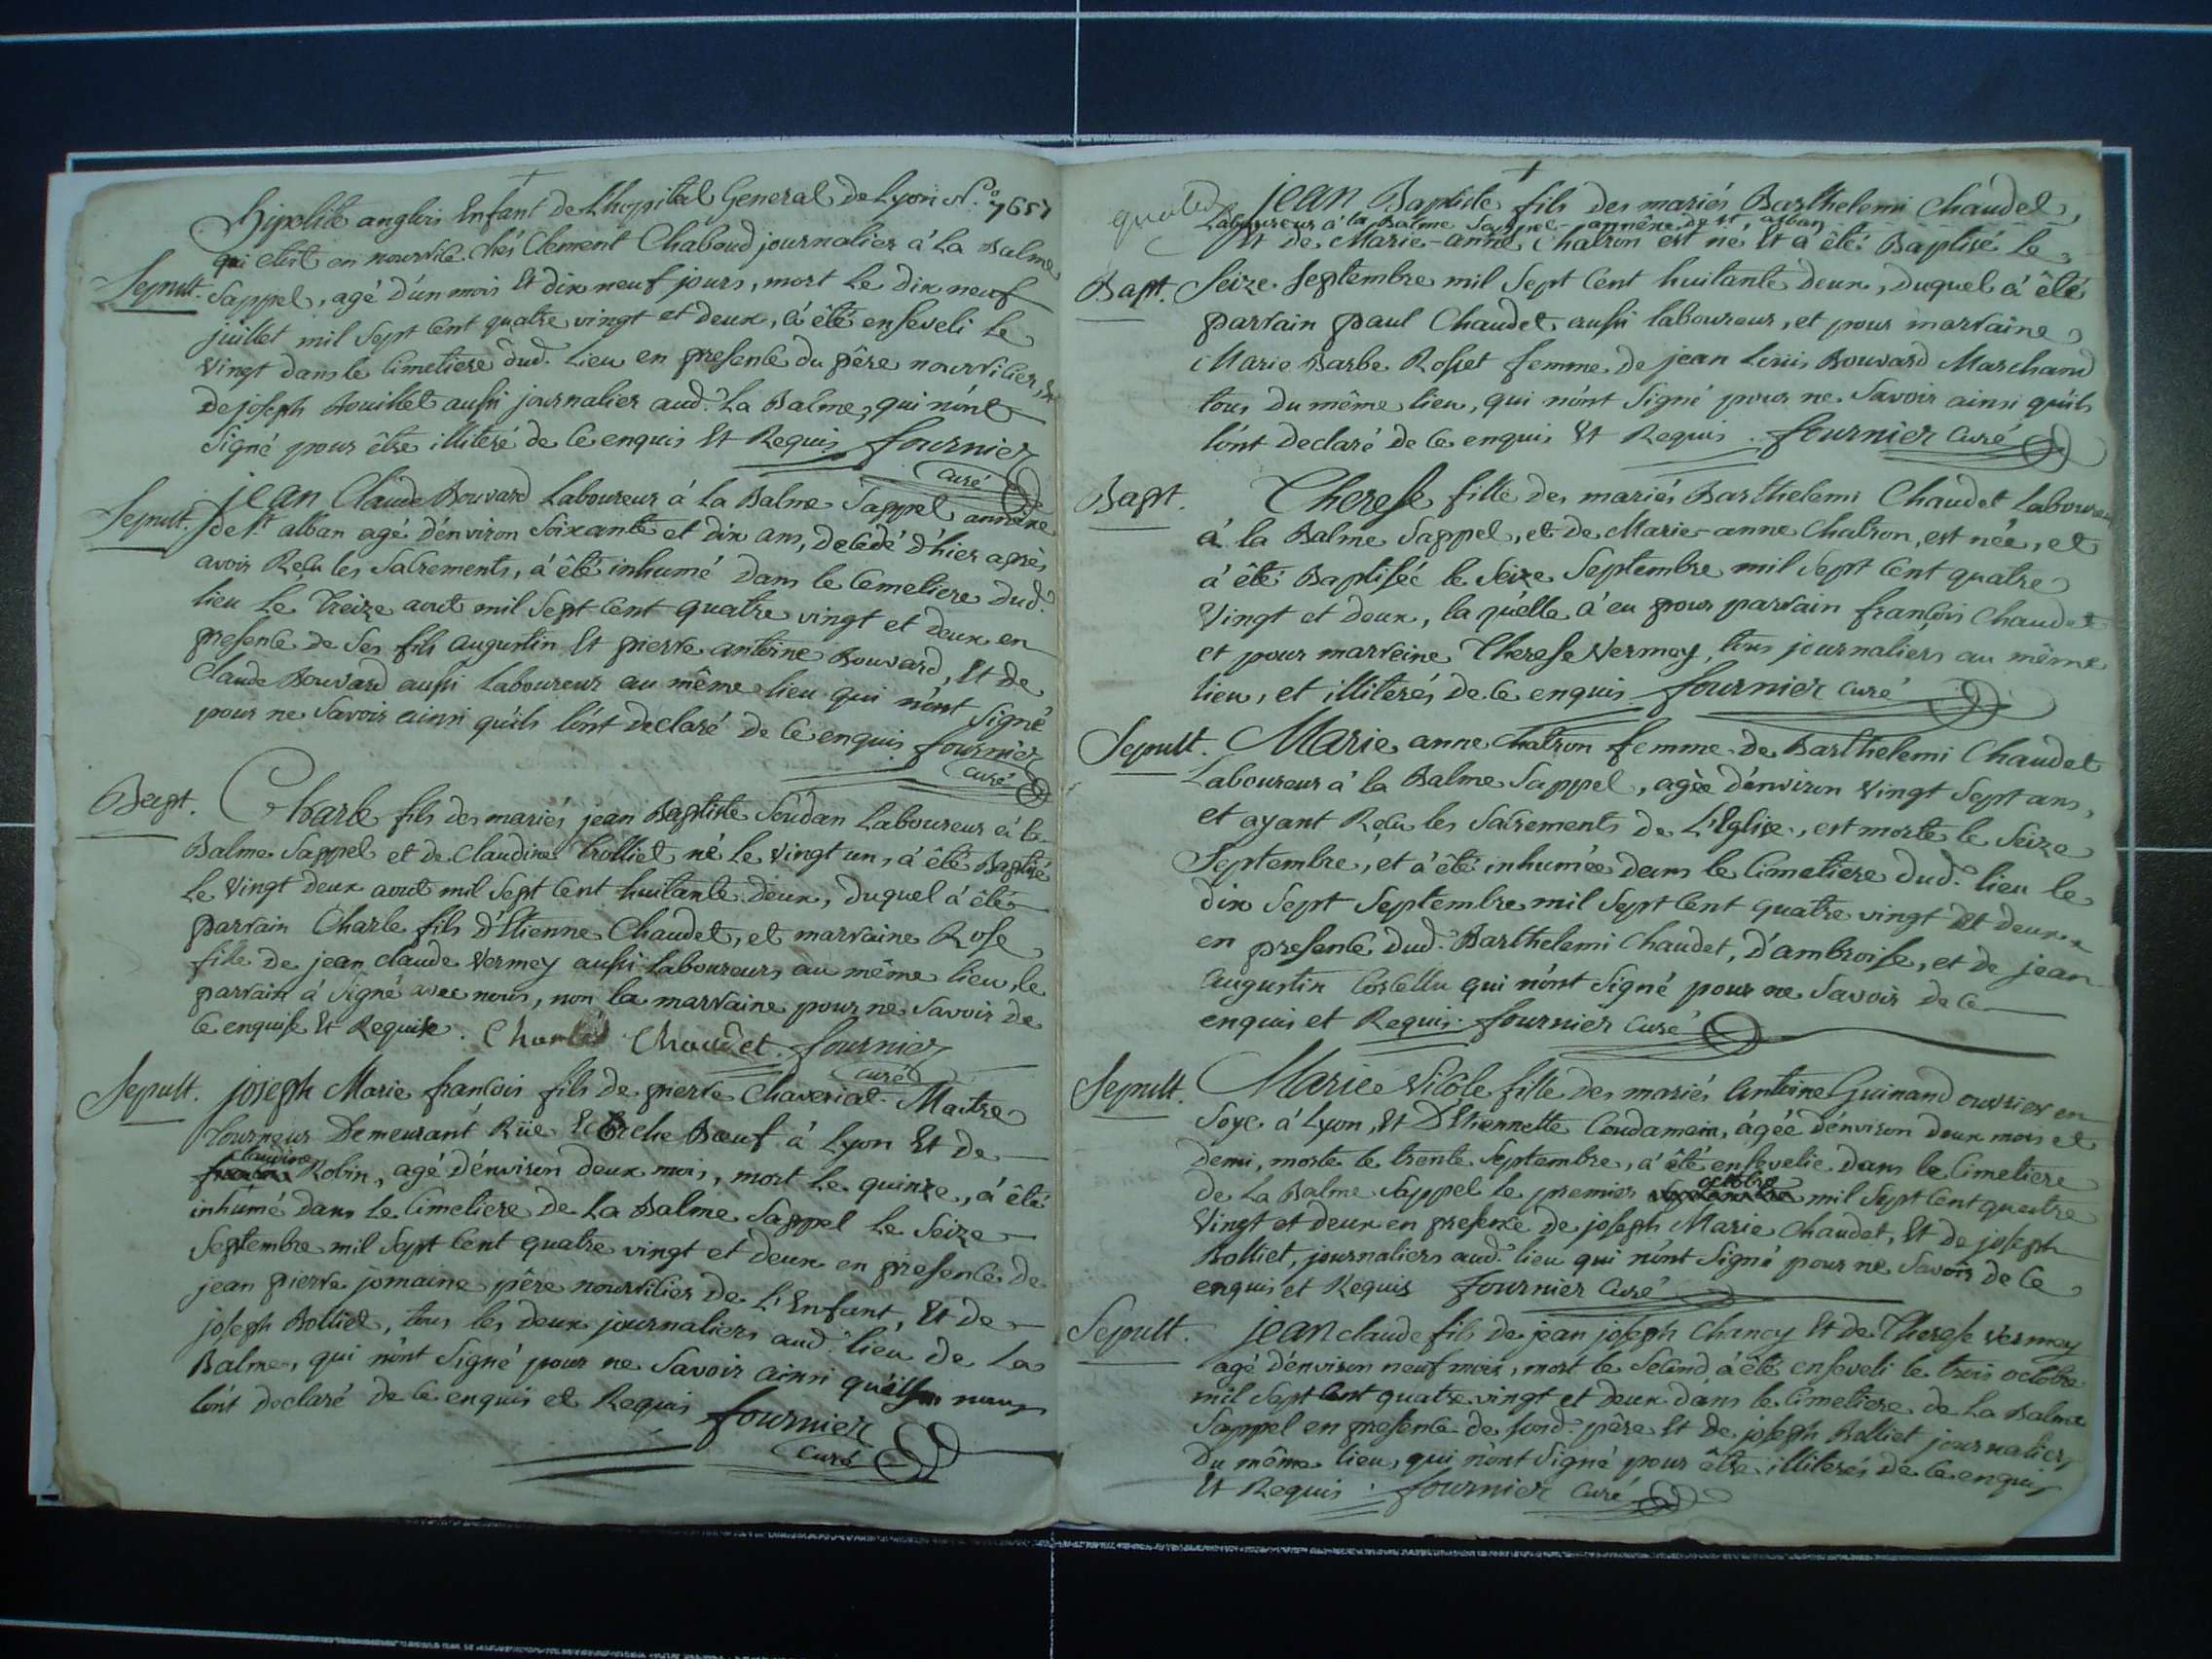 hipolite anglois Enfant de Lhopital General de Lyon N.o 7651
qui etoit en nourrice chés Clement Chaboud journalier à La Balme
Sepult. Sappel, agé d'un mois Et dix neuf jours, mort Le dix neuf
juillet mil Sept Cent quatre vingt et deux, à été enseveli Le
Vingt dans le Cimetiere dud. Lieu en presence du père nourricier, Et
De joseph Bouillet aussi journalier aud. La Balme, qui n'ont
Signé pour être illiteré de Ce enquis Et Requis fournier
curé
jean Claude Bouvard Laboureur à La Balme Sappel annexe
Sepult. de St. alban agé d'environ Soixante et dix ans, decedé d'hier après
avoir Reçu les Sacrements, à été inhumé dans le Cemetiere dud.
lieu Le treize aout mil Sept Cent quatre vingt et deux en
presence de Ses fils augustin Et pierre antoine Bouvard, Et de
Claude Bouvard aussi Laboureur au même lieu qui n'ont Signé
pour ne Savoir ainsi qu'ils l'ont declaré de Ce enquis fournier
curé
Bapt. Charle fils des mariés jean Baptiste Soudan Laboureur à la
Balme Sappel et de Claudine Trolliet né le vingt un, à été Baptisé
Le Vingt deux aout mil Sept Cent huitante deux, duquel à été
parrain Charle fils d'Etienne Chaudet, et marraine Rose
fille de jean claude Vermey aussi Laboureurs au même lieu, le
parrain à Signé avec nous, non la marraine pour ne Savoir de
Ce enquise Et Requise. Charles Chaudet. fournier
curé
Sepult. joseph Marie françois fils de pierre Chaverial Maitre
Tourneur Demeurant Rüe Ecorche Bœuf à Lyon Et de
Claudine
Robin, agé d'environ deux mois, mort Le quinze, à été
inhumé dans Le Cimetiere de La Balme Sappel Le Seize
Septembre mil Sept Cent quatre vingt et deux en presence de
jean pierre jomaine père nourricier de L'Enfant, Et de
joseph Bolliet, tous les deux journaliers aud. lieu de La
Balme, qui n'ont Signé pour ne Savoir ainsi qu'ils nous
l'ont declaré de Ce enquis et Requis fournier
curé
jean Baptiste fils des mariés Barthelemi Chaudet,
Laboureur à la Balme Sappel annexe de St. alban
Et de Marie-anne Chatron est né Et à été Baptisé Le
Bapt. Seize Septembre mil Sept Cent huitante deux, Duquel à été
parrain paul Chaudet aussi laboureur, et pour marraine
Marie Barbe Rosset femme de jean Louis Bouvard Marchand
tous du même lieu, qui n'ont Signé pour ne Savoir ainsi qu'ils
l'ont declaré de Ce enquis Et Requis. fournier Curé
Bapt. Therese fille des mariés Barthelemi Chaudet Laboureur
à la Balme Sappel, et de Marie-anne Chatron, est née, et
à été Baptisée le Seize Septembre mil Sept Cent quatre
Vingt et deux, la quelle à eu pour parrain françois Chaudet
et pour marreine Therese Vermey, tous journaliers au même
lieu, et illiterés de Ce enquis fournier curé
Sepult. Marie anne Chatron femme de Barthelemi Chaudet
Laboureur à la Balme Sappel, agée d'environ Vingt Sept ans,
et ayant Reçu les Sacrements de L'Eglise, est morte le Seize
Septembre, et à été inhumée dans le Cimetiere dud. lieu le
dix Sept Septembre mil Sept Cent quatre vingt Et deux
en presence dud. Barthelemi Chaudet, d'ambroise, et de jean
augustin Costellu qui n'ont Signé pour ne Savoir de Ce
enquis et Requis. fournier Curé
Sepult. Marie Nicôle fille des mariés Antoine Guinand ouvrier en
Soye à Lyon, Et D'Etiennette Coudamein, âgée d'environ deux mois et
demi, morte le trente Septembre, à été ensevelie dans le Cimetiere
octobre
de La Balme Sappel Le premier mil Sept Cent quatre
Vingt et deux en presence de joseph Marie Chaudet, Et de joseph
Bolliet, journaliers aud. lieu qui n'ont Signé pour ne Savoir de Ce
enquis et Requis fournier Curé
Sepult. jean claude fils de jean joseph Chanoy Et de Therese Vermey
agé d'environ neuf mois, mort le Second, à été enseveli le trois octobre
mil Sept Cent quatre vingt et deux dans le Cimetiere de La Balme
Sappel en presence de sond. père Et de joseph Bolliet journalier,
Du même lieu, qui n'ont Signé pour être illiterés de Ce enquis
Et Requis. fournier Curé